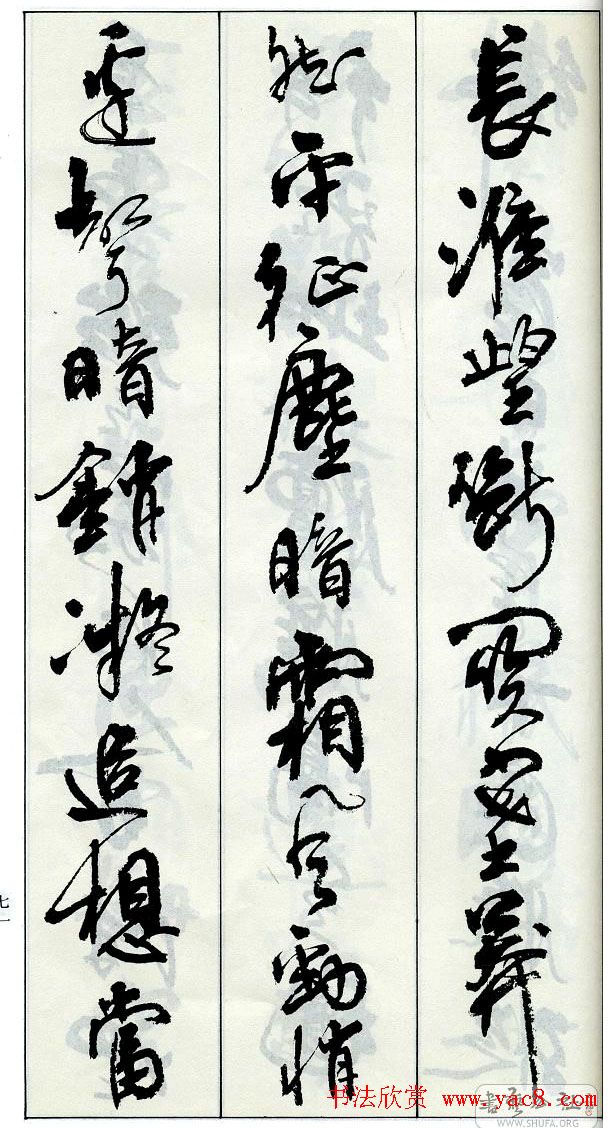 長淮望斷關塞莽
然平征塵暗霜風勁悄
邊聲暗銷凝追想當
七一
书法欣赏 www.yac8.com
WWW.SHUFA.ORG